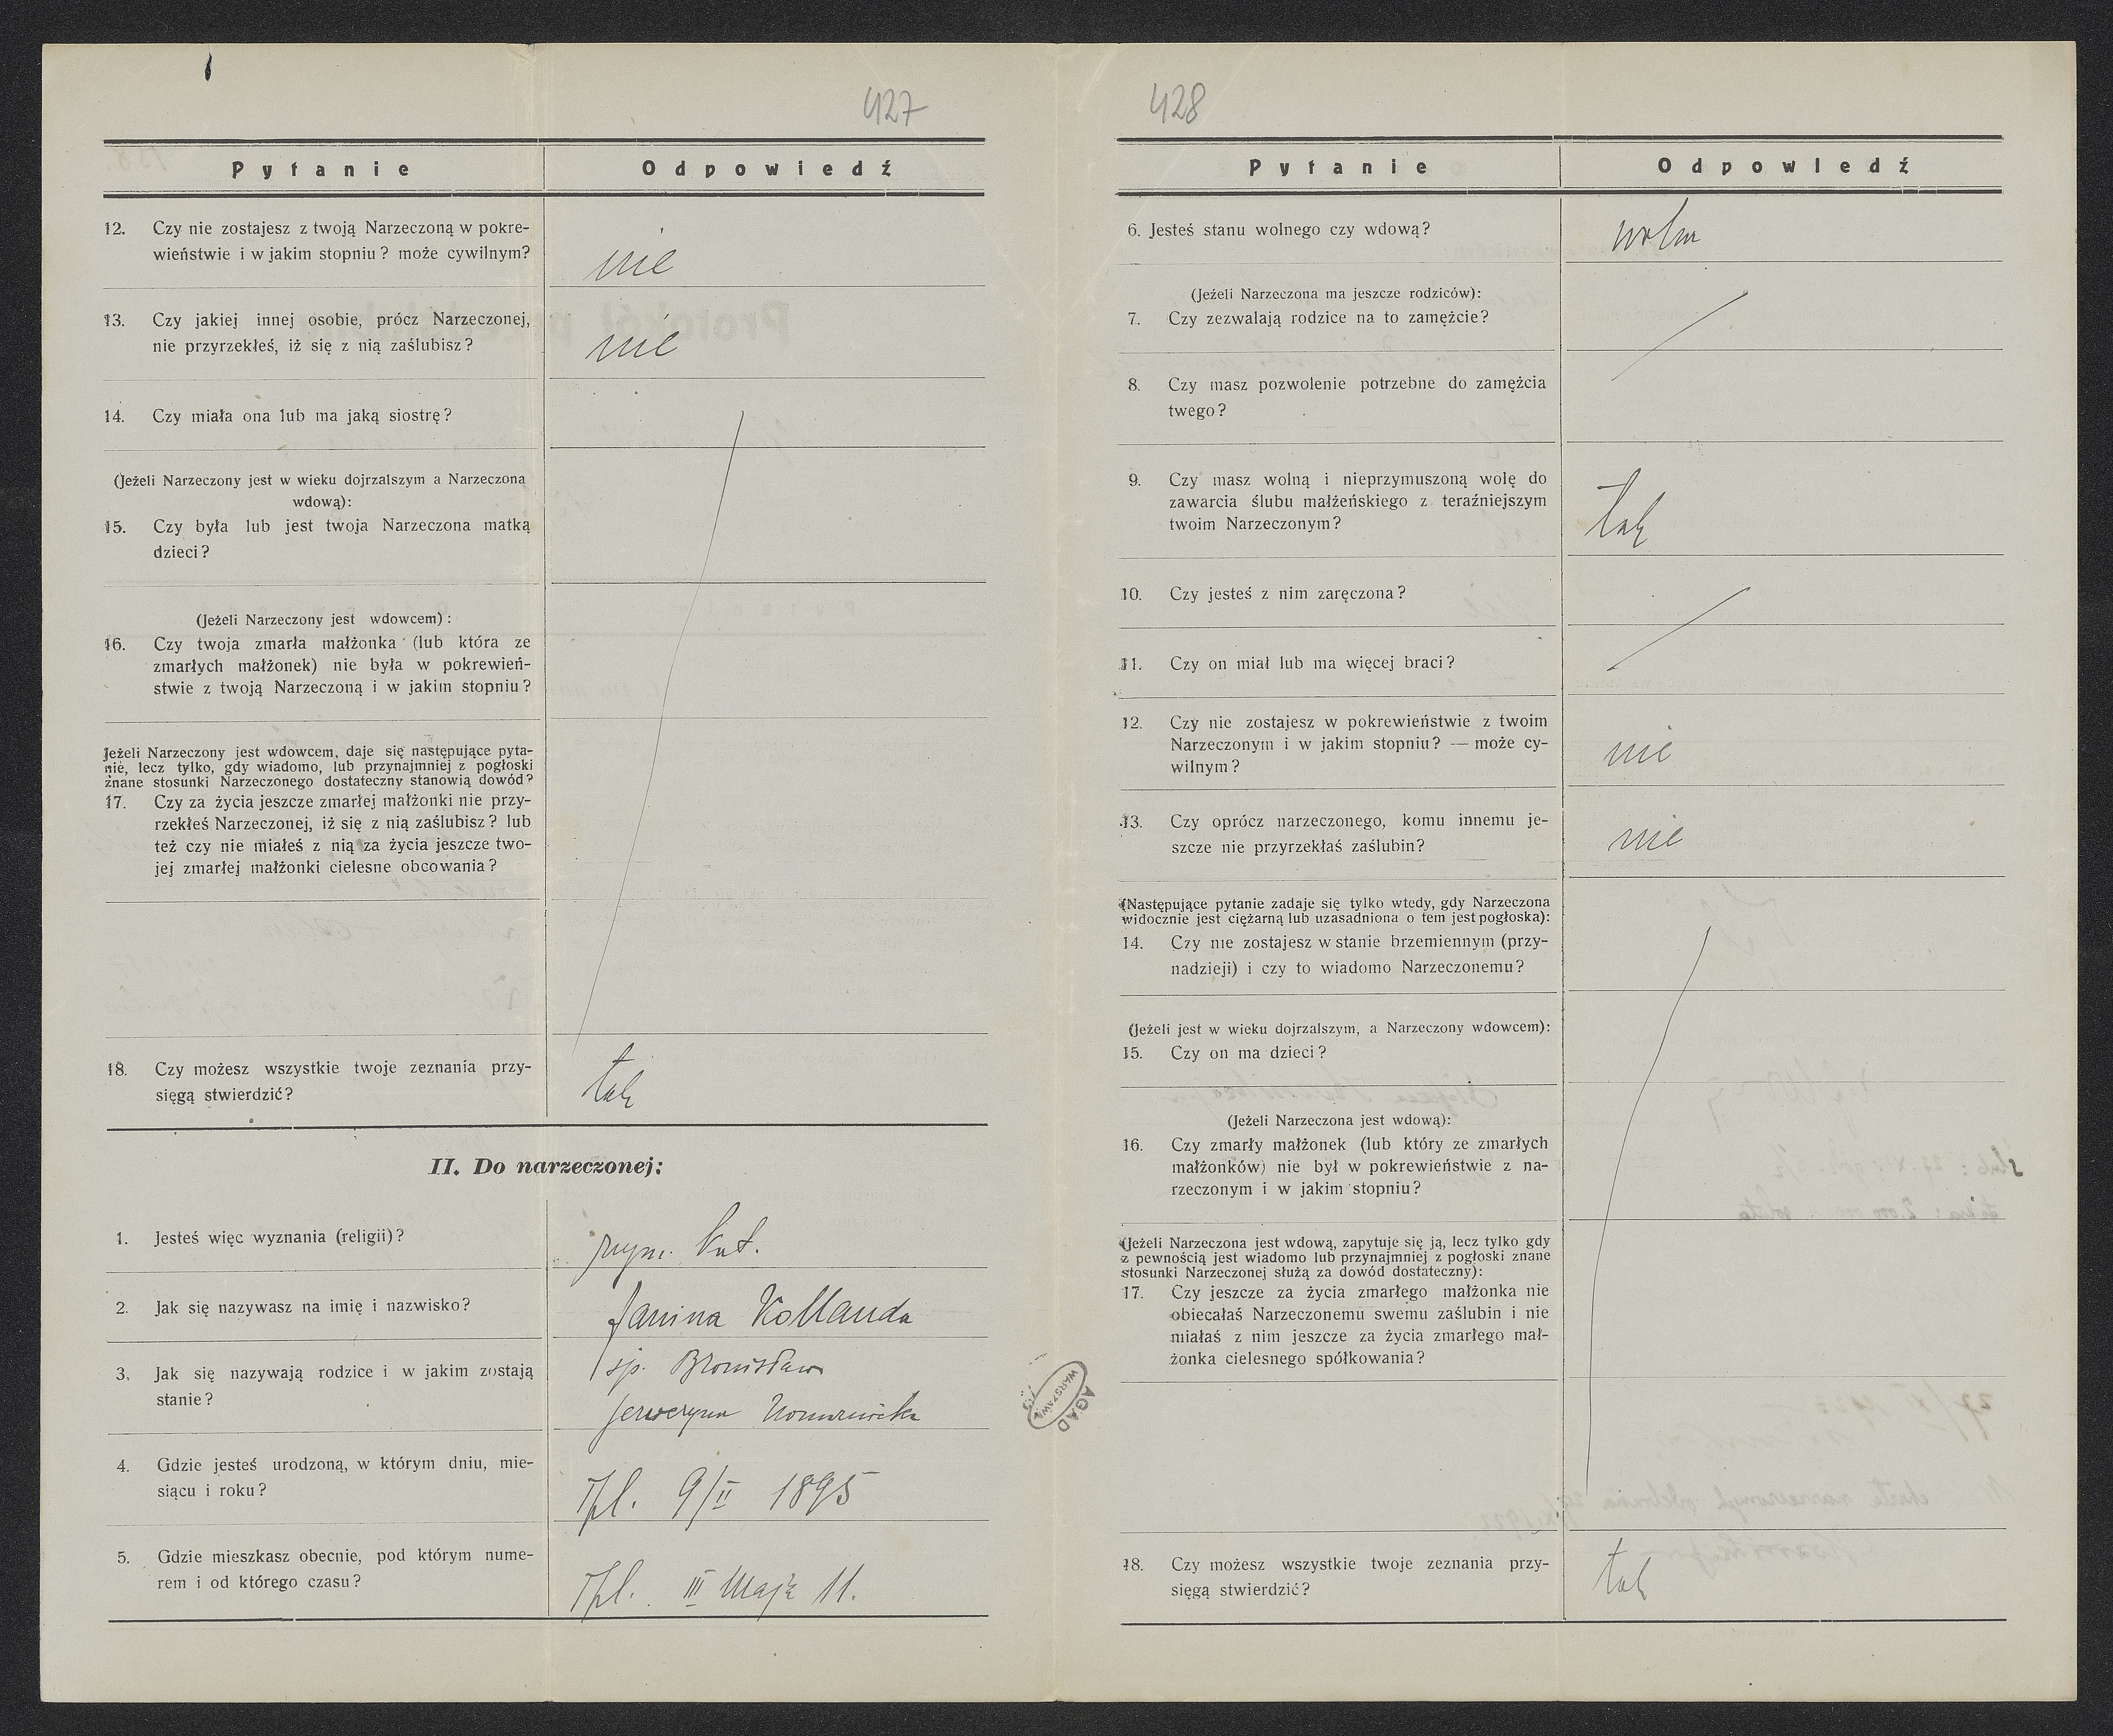 427
Pytanie Odpowiedź
12. Czy nie zostajesz z twoją Narzeczoną w pokre-
wieństwie i w jakim stopniu? może cywilnym?
nie
13. Czy jakiej innej osobie, prócz Narzeczonej,
nie przyrzekłeś, iż się z nią zaślubisz?
nie
14. Czy miała ona lub ma jaką siostrę?
(Jeżeli Narzeczony jest w wieku dojrzalszym a Narzeczona
wdową):
15. Czy była lub jest twoja Narzeczona matką
dzieci?
(Jeżeli Narzeczony jest wdowcem):
16. Czy twoja zmarła małżonka (lub która ze
zmarłych małżonek) nie była w pokrewień-
stwie z twoją Narzeczoną i w jakim stopniu?
Jeżeli Narzeczony jest wdowcem, daje się następujące pyta-
nie, lecz tylko, gdy wiadomo, lub przynajmniej z pogłoski
znane stosunki Narzeczonego dostateczny stanowią dowód?
17. Czy za życia jeszcze zmarłej małżonki nie przy-
rzekłeś Narzeczonej, iż się z nią zaślubisz? lub
też czy nie miałeś z nią za życia jeszcze two-
jej zmarłej małżonki cielesne obcowania?
18. Czy możesz wszystkie twoje zeznania przy-
sięgą stwierdzić?
tak
II. Do narzeczonej:
1. Jesteś więc wyznania (religii)?
rzym. kat.
2. Jak się nazywasz na imię i nazwisko?
Janina Kollanda
3. Jak się nazywają rodzice i w jakim zostają
stanie?
śp. Bronisław
4. Gdzie jesteś urodzoną, w którym dniu, mie-
siącu i roku?
Tpl. 9/II 1895
5. Gdzie mieszkasz obecnie, pod którym nume-
rem i od którego czasu?
Tpl. III Maja 11.
AGAD
WARSZAWA
428
Pytanie Odpowiedź
6. Jesteś stanu wolnego czy wdową?
wolna
(Jeżeli Narzeczona ma jeszcze rodziców):
7. Czy zezwalają rodzice na to zamężcie?
8. Czy masz pozwolenie potrzebne do zamężcia
twego?
9. Czy masz wolną i nieprzymuszoną wolę do
zawarcia ślubu małżeńskiego z teraźniejszym
twoim Narzeczonym?
tak
10. Czy jesteś z nim zaręczona?
11. Czy on miał lub ma więcej braci?
12. Czy nie zostajesz w pokrewieństwie z twoim
Narzeczonym i w jakim stopniu? — może cy-
wilnym?
nie
13. Czy oprócz narzeczonego, komu innemu je-
szcze nie przyrzekłaś zaślubin?
nie
(Następujące pytanie zadaje się tylko wtedy, gdy Narzeczona
widocznie jest ciężarną lub uzasadniona o tem jest pogłoska):
14. Czy nie zostajesz w stanie brzemiennym (przy-
nadzieji) i czy to wiadomo Narzeczonemu?
(Jeżeli jest w wieku dojrzalszym, a Narzeczony wdowcem):
15. Czy on ma dzieci?
(Jeżeli Narzeczona jest wdową):
16. Czy zmarły małżonek (lub który ze zmarłych
małżonków) nie był w pokrewieństwie z na-
rzeczonym i w jakim stopniu?
(Jeżeli Narzeczona jest wdową, zapytuje się ją, lecz tylko gdy
z pewnością jest wiadomo lub przynajmniej z pogłoski znane
stosunki Narzeczonej służą za dowód dostateczny):
17. Czy jeszcze za życia zmarłego małżonka nie
obiecałaś Narzeczonemu swemu zaślubin i nie
miałaś z nim jeszcze za życia zmarłego mał-
żonka cielesnego spółkowania?
18. Czy możesz wszystkie twoje zeznania przy-
sięgą stwierdzić?
tak